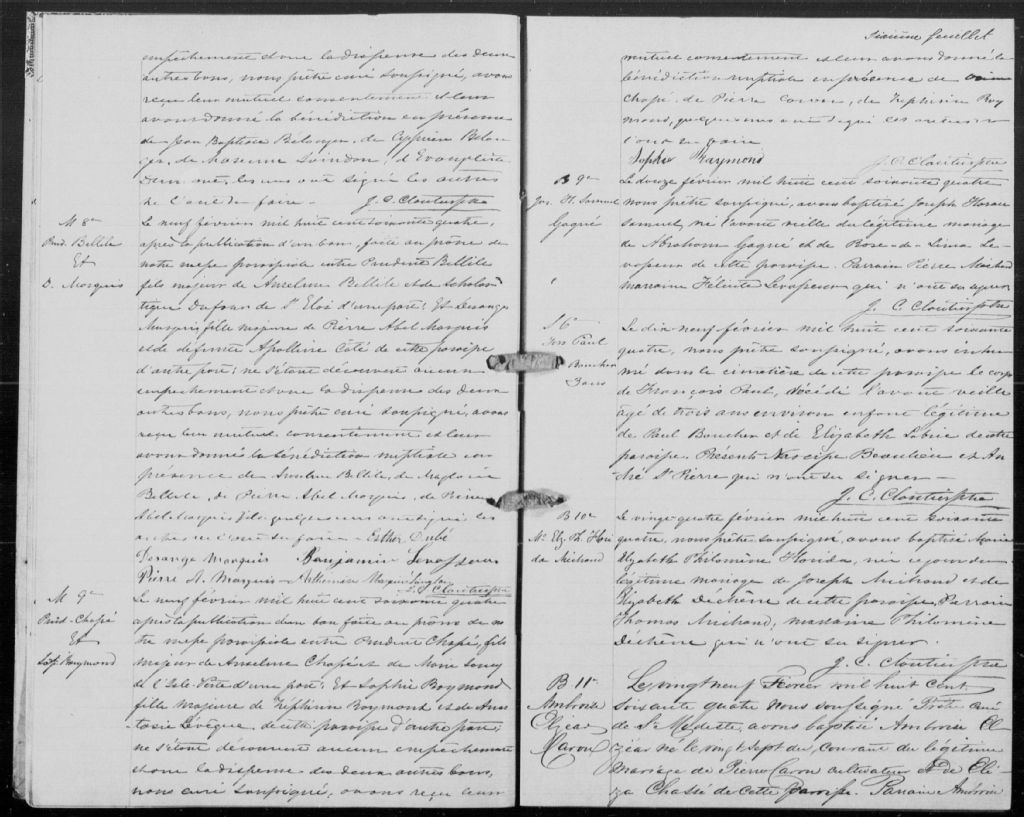 empêchement et vu la dispense des deux
autres bans, nous prêtre curé soussigné, avons
reçu leur mutuel consentement et leur
avons donné la bénédiction en présence
de Jean Baptiste Bélanger, de Cyprien Belan
ger, de Maxime Evangéliste
les uns ont signé les autres
de l'avoir faire - J. C. Cloutier ptre
M 8e
Prud. Bellile
Et
D. Marquis
Le neuf février mil huit cent soixante quatre,
après la publication d'un ban, faite au prône de
notre messe paroissiale entre Prudent Bellile
fils majeur de Anselme Bellile et de Scholas
tique Dufour de St Eloi d'une part; Et Desange
Marquis fille majeure de Pierre Abel Marquis
et de défunte Apolline Coté de cette paroisse
d'autre part; ne s'étant découvert aucun
empêchement et vu la dispense des deux
autres bans, nous prêtre curé soussigné, avons
reçu leur mutuel consentement et leur
avons donné la bénédiction nuptiale en
présence de Anselme Bellile, de Magloire
Bellile, de Pierre Abel Marquis, de Pierre
Abel Marquis fils quelques uns ont signé les
autres ne l'ont su faire - Esther Dubé
Desange Marquis Benjamin Levasseur
Pierre A. Marquis - Marquis Langlais
J. C. Cloutier ptre
M 9e
Prud. Chapé
Et
Sop. Raymond
Le neuf février mil huit cent soixante quatre
après la publication d'un ban faite au prône de no
tre messe paroissiale entre Prudent Chapé, fils
majeur de Anselme Chapé et de Marie Soucy
de l'Isle-Verte d'une part; Et Sophie Raymond
fille majeure de Zephirin Raymond et de Anas
tasie Lévêque, de cette paroisse d'autre part;
ne s'étant découvert aucun empêchement
et vu la dispense des deux autres bans,
nous curé soussigné, avons reçu leur
Sixième feuillet
mutuel consentement et leur avons donné la
bénédiction nuptiale en présence de
Chapé, de Pierre Caron, de Zephirin Ray
mond, quelques uns ont signé les autres n
l'ont su faire
Sophie Raymond
J. C. Cloutier ptre
B 9e
Jos. H. Samuel
Gagné
Le douze février mil huit cent soixante quatre
nous prêtre soussigné, avons baptisé Joseph Horace
Samuel, né l'avant veille du légitime mariage
de Abraham Gagné et de Rose-de-Lima Le-
vasseur de cette paroisse. Parrain Pierre Michaud
marraine Félicité Levasseur qui n'ont su signer
J. C. Cloutier ptre
S 6
Frs Paul
Boucher
3 ans
Le dix neuf février mil huit cent soixante
quatre, nous prêtre soussigné, avons inhu
mé dans le cimetière de cette paroisse le corps
de François Paul, décédé l'avant veille
âgé de trois ans environ enfant légitime
de Paul Boucher et de Elizabeth Sabin de cette
paroisse. Présents Narcisse Beaulieu et An
dré St Pierre qui n'ont su signer -
J. C. Cloutier ptre
B 10e
Me Eliz. Ph. Flori
da Michaud
Le vingt quatre février mil huit cent soixante
quatre, nous prêtre soussigné, avons baptisé Marie
Elizabeth Philomène Florida, née ce jour du
légitime mariage de Joseph Michaud et de
Elizabeth Déchêne de cette paroisse. Parrain
Thomas Michaud, marraine Philomène
Déchêne qui n'ont su signer.
J. C. Cloutier ptre
B 11e
Ambroise
Elzéar
Caron
Le vingt neuf Février mil huit cent
Soixante quatre nous soussigné Prêtre curé
de St Modeste, avons baptisé Ambroise El
zéar né le vingt Sept du Courant du légitime
mariage de Pierre Caron cultivateur et de Eli
za Chassé de cette Paroisse. Parrain Ambroise